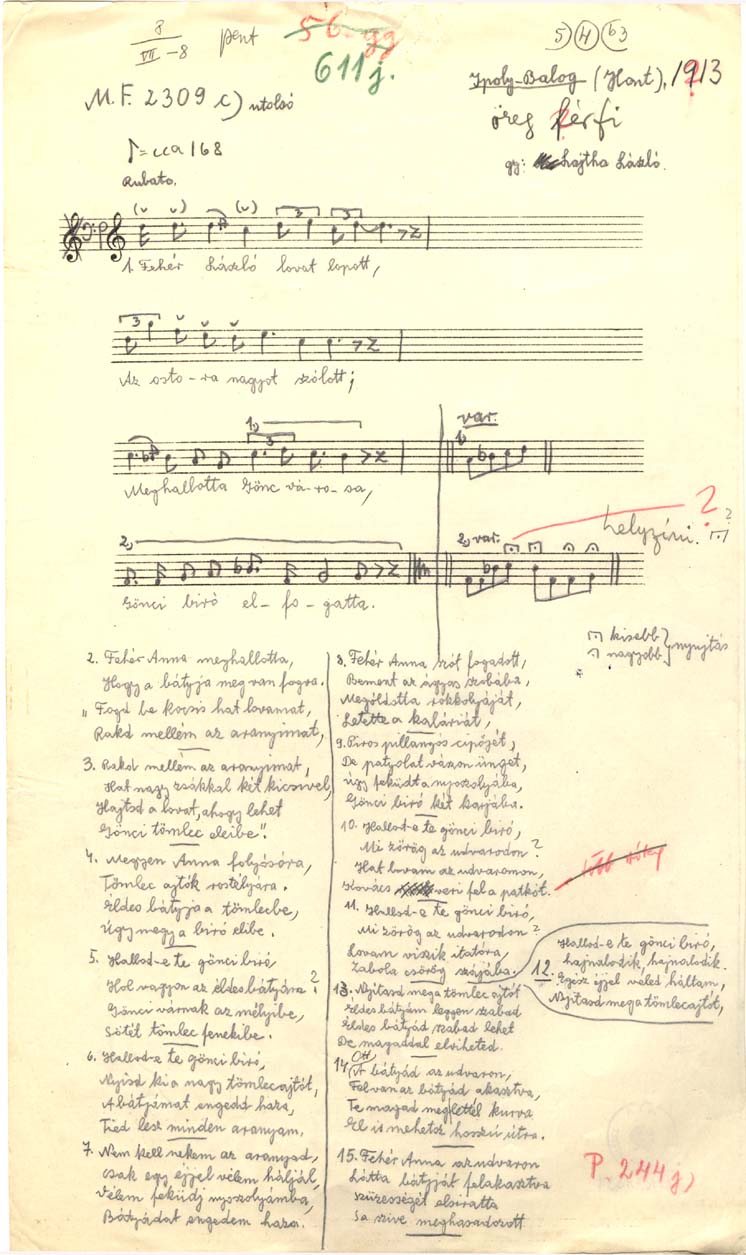 8
VII -8
pent
56. gg
611 j.
5 4 63
M.F. 2309 c) utolsó
Ipoly-Balog (Hont), 1913 ?
öreg férfi
gy: Lajtha László.
♪=cca 168
Rubato.
1. Fehér László lovat lopott,
Az osto-ra nagyot szólott;
1,
var.
1,
Meghallotta Gönc vá-ro-sa,
helyzíni. ?
2,
2, var.
Gönci biró el-fo-gatta.
kisebb
nagyobb
nyujtás
2. Fehér Anna meghallotta,
Hogy a bátyja meg van fogva.
"Fogd be kocsis hat lovamat,
Rakd mellém az aranyimat,
3. Rakd mellém az aranyimat,
Hat nagy zsákkal két kicsivel,
Hajtsd a lovat, ahogy lehet
Gönci tömlec eleibe".
4. Megyen Anna folyósóra,
Tömlec ajtók rostélyára.
Éldes bátyja a tömlecbe,
Úgy megy a biró elibe.
5. Hallod-e te gönci biró
Hol vagyon az éldes bátyára?
Gönci várnak az mélyibe,
Sötét tömlec fenekibe.
6. Hallod-e te gönci biró,
Nyisd ki a nagy tömlecajtót,
A bátyámat engedd haza,
Tied lesz minden aranyam.
7. Nem kell nekem az aranyad,
Csak egy éjjel vélem háljál,
Vélem feküdj nyoszolyámba,
Bátyádat engedem haza.
8. Fehér Anna szót fogadott,
Bement az ágyas szobába,
Mególdotta rokkolyáját,
Letette a kaláriát,
9. Piros pillangós cipőjét,
De patyolat vászon ünget,
Úgy feküdt a nyoszolyába,
Gönci biró két karjába.
10. Hallod-e te gönci biró,
Mi zörög az udvarodon?
Hat lovam az udvaromon,
Kovács veri fel a patkót.
több sótey
11. Hallod-e te gönci biró,
Mi zörög az udvarodon?
Lovam viszik itatóra,
Zabola csörög szájába.
12. Hallod-e te gönci biró,
hajnalodik, hajnalodik.
Egész éjjel veled háltam,
Nyitasd meg a tömlecajtót,
13. Nyitasd meg a tömlec ajtót
Éldes bátyám legyen szabad
Éldes bátyád szabad lehet
De magaddal elviheted.
14. Ott
A bátyád az udvaron,
Fel van az bátyád akasztva,
Te magad meglettél kurva
El is mehetsz hosszú útra.
15. Fehér Anna az udvaron
Látta bátyját felakasztva
Szüzességét elsiratta
Sa szive meghasadozott
P. 244 j)